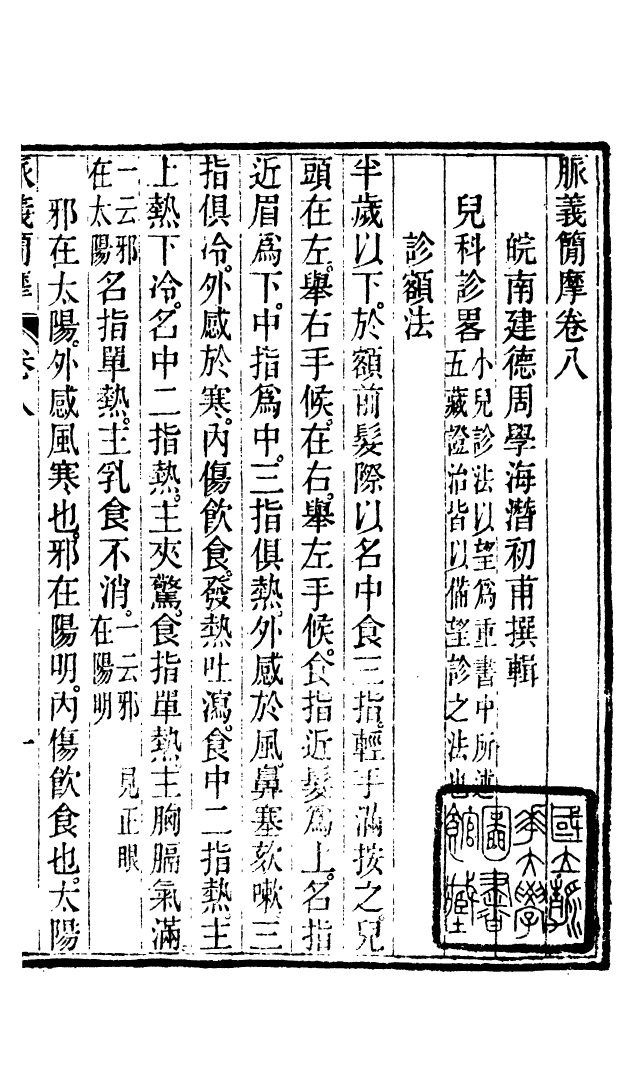 脈義簡摩卷八
皖南建德周學海潛初甫撰輯
兒科診畧小兒診法以望爲重書中所述五藏證治皆以備望診之法也
診額法
半歲以下。於額前髮際以名中食三指。輕手滿按之。兒
頭在左。舉右手候。在右。舉左手候。食指近髮爲上。名指
近眉爲下。中指爲中。三指俱熱。外感於風。鼻塞欬嗽。三
指俱冷。外感於寒。內傷飲食。發熱吐瀉。食中二指熱。主
上熱下冷。名中二指熱。主夾驚。食指單熱。主胸膈氣滿。
一云邪在太陽名指單熱。主乳食不消。一云邪在陽明　見正眼
邪在太陽。外感風寒也。邪在陽明。內傷飲食也。太陽
脈義簡摩　卷八　一
國立
大學
圖書
館藏